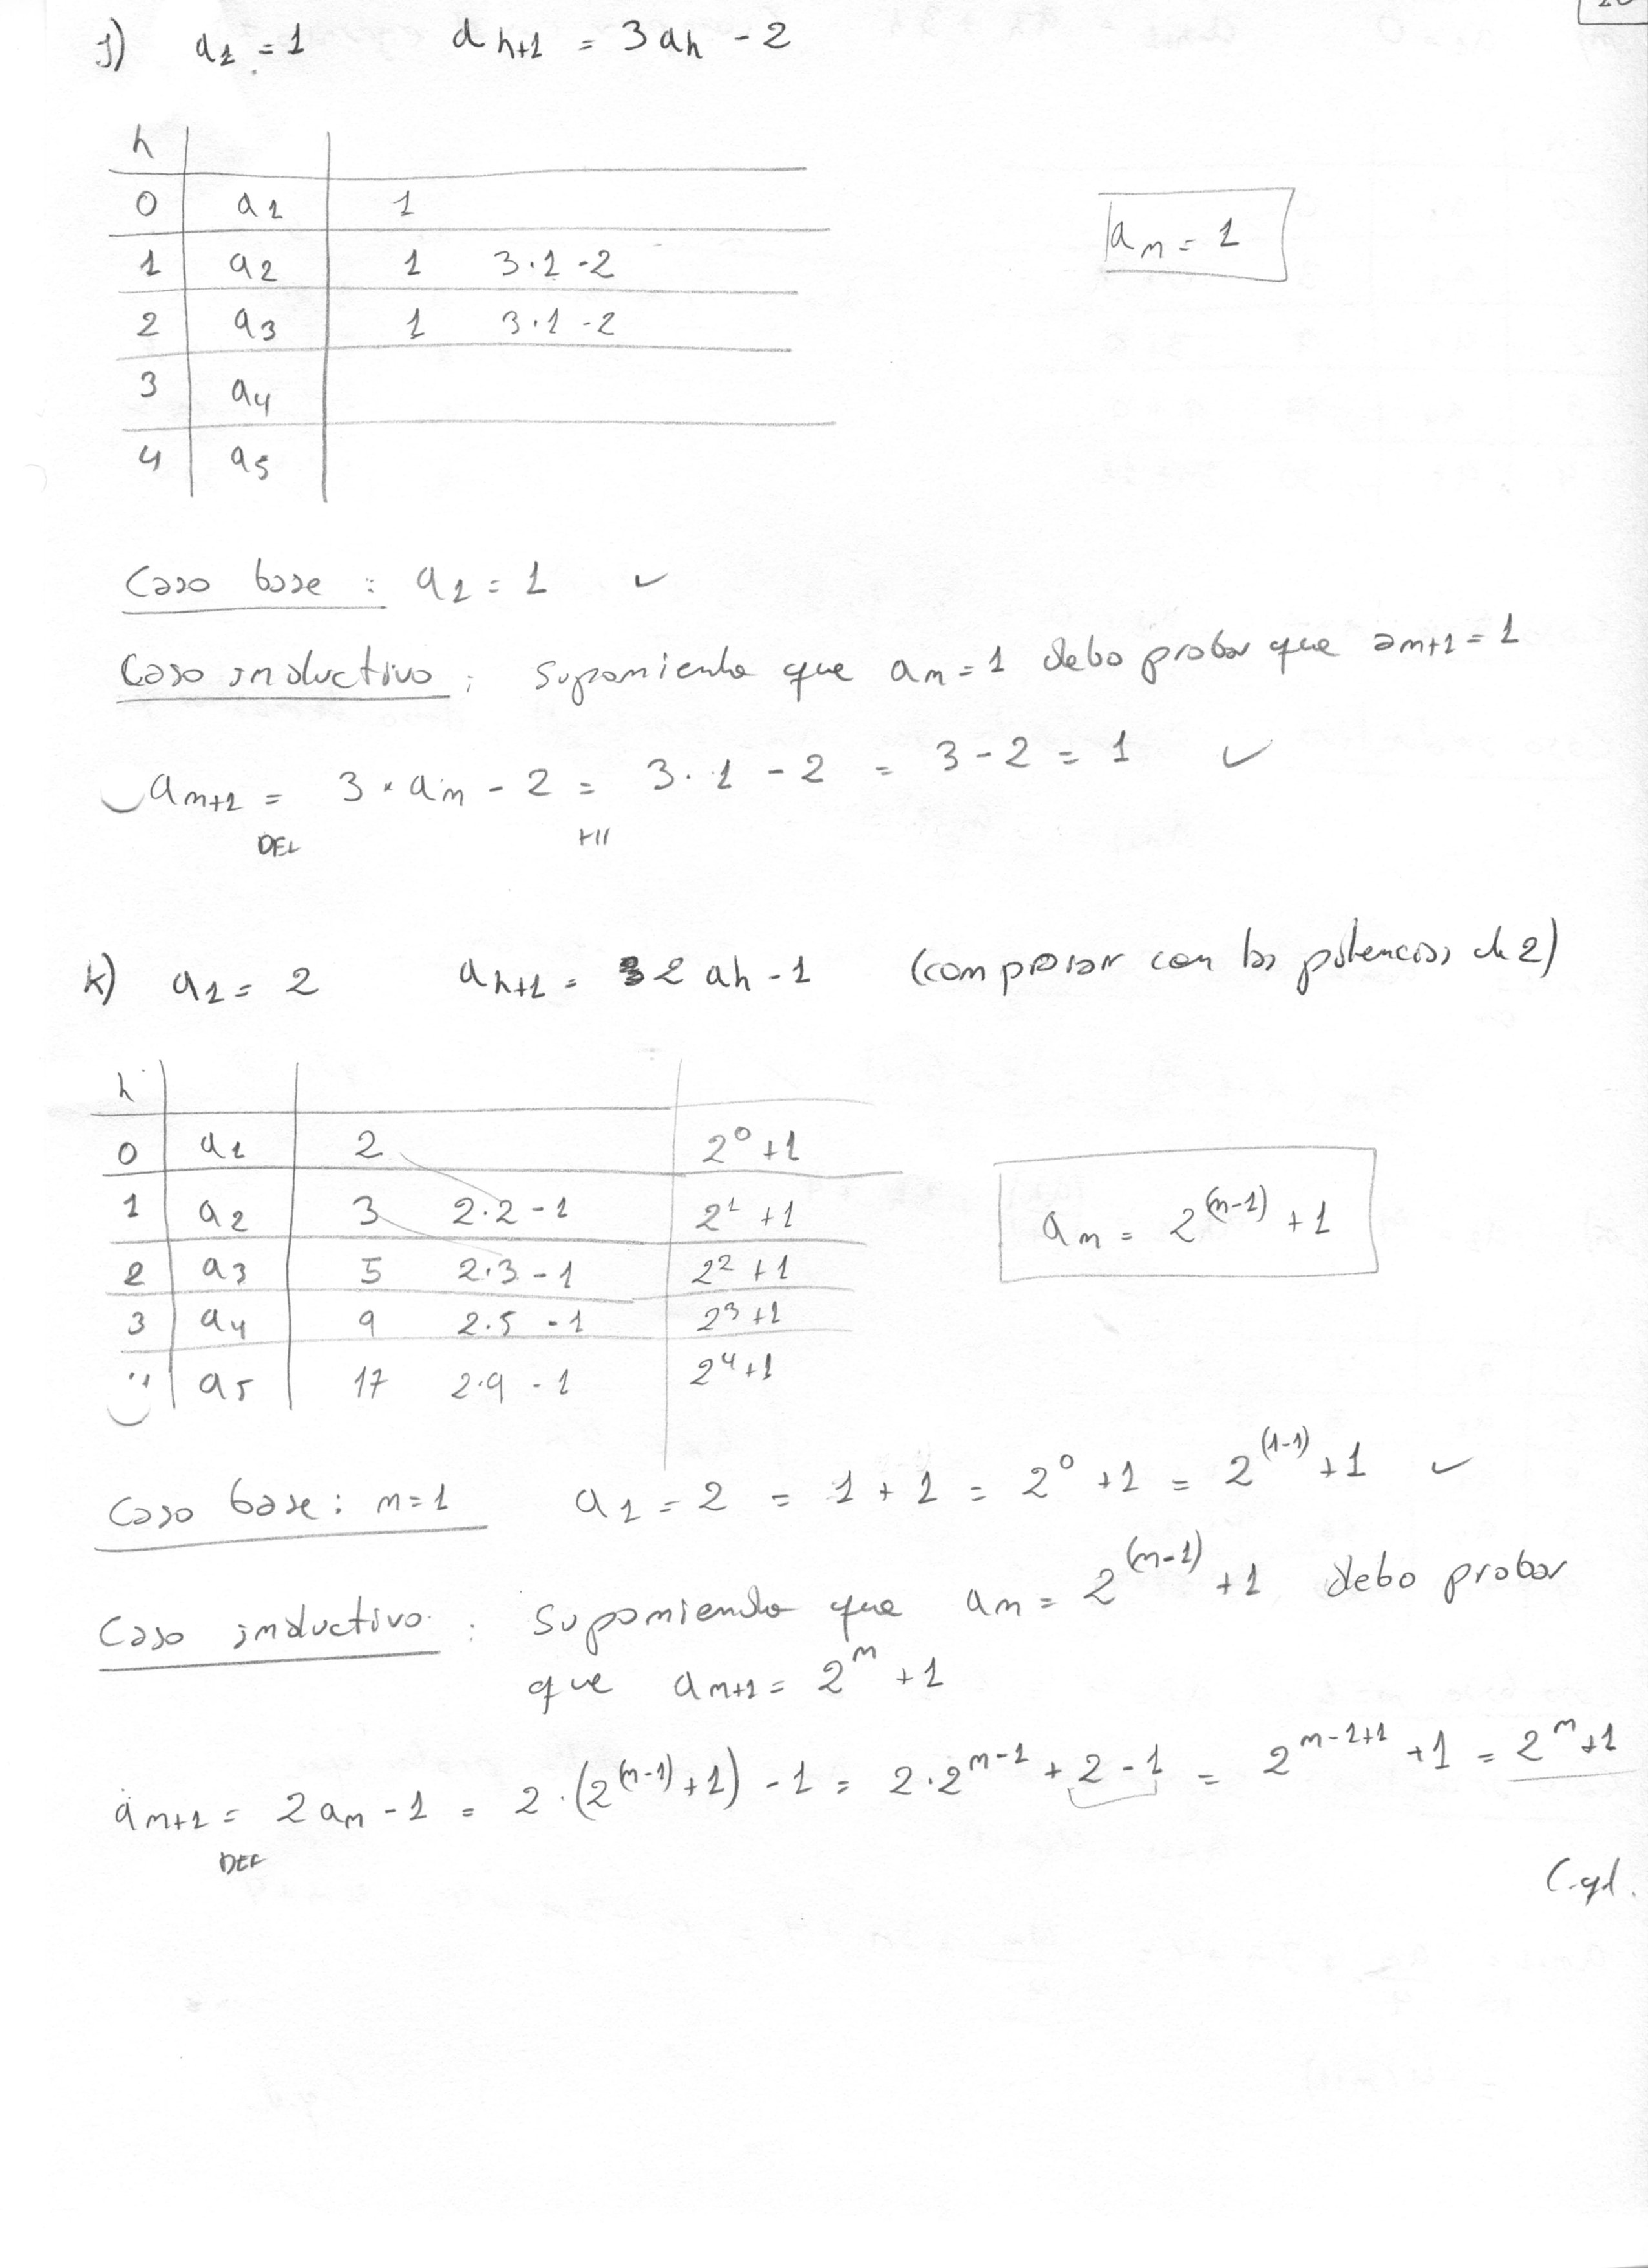 j) a1 = 1 an+1 = 3an - 2
n
0 a1 1
1 a2 1 3·1-2
an = 1
2 a3 1 3·1-2
3 a4
4 a5
Caso base : a1 = 1 ✓
Caso inductivo : Suponiendo que an = 1 debo probar que an+1 = 1
an+1 = 3 * an - 2 = 3·1 - 2 = 3 - 2 = 1 ✓
DEF HI
k) a1 = 2 an+1 = 2 an - 1 (comparar con las potencias de 2)
n
0 a1 2 2^0 +1
1 a2 3 2·2-1 2^1 +1
an = 2^(n-1) + 1
2 a3 5 2·3-1 2^2 +1
3 a4 9 2·5 -1 2^3 +1
a5 17 2·9 -1 2^4 +1
Caso base : n=1 a1 = 2 = 1 + 1 = 2^0 +1 = 2^(1-1) +1 ✓
Caso inductivo : Suponiendo que an = 2^(n-1) +1 debo probar
que an+1 = 2^n +1
an+1 = 2 an - 1 = 2·(2^(n-1) +1) - 1 = 2·2^n-1 + 2 - 1 = 2^n-1+1 +1 = 2^n +1
DEF